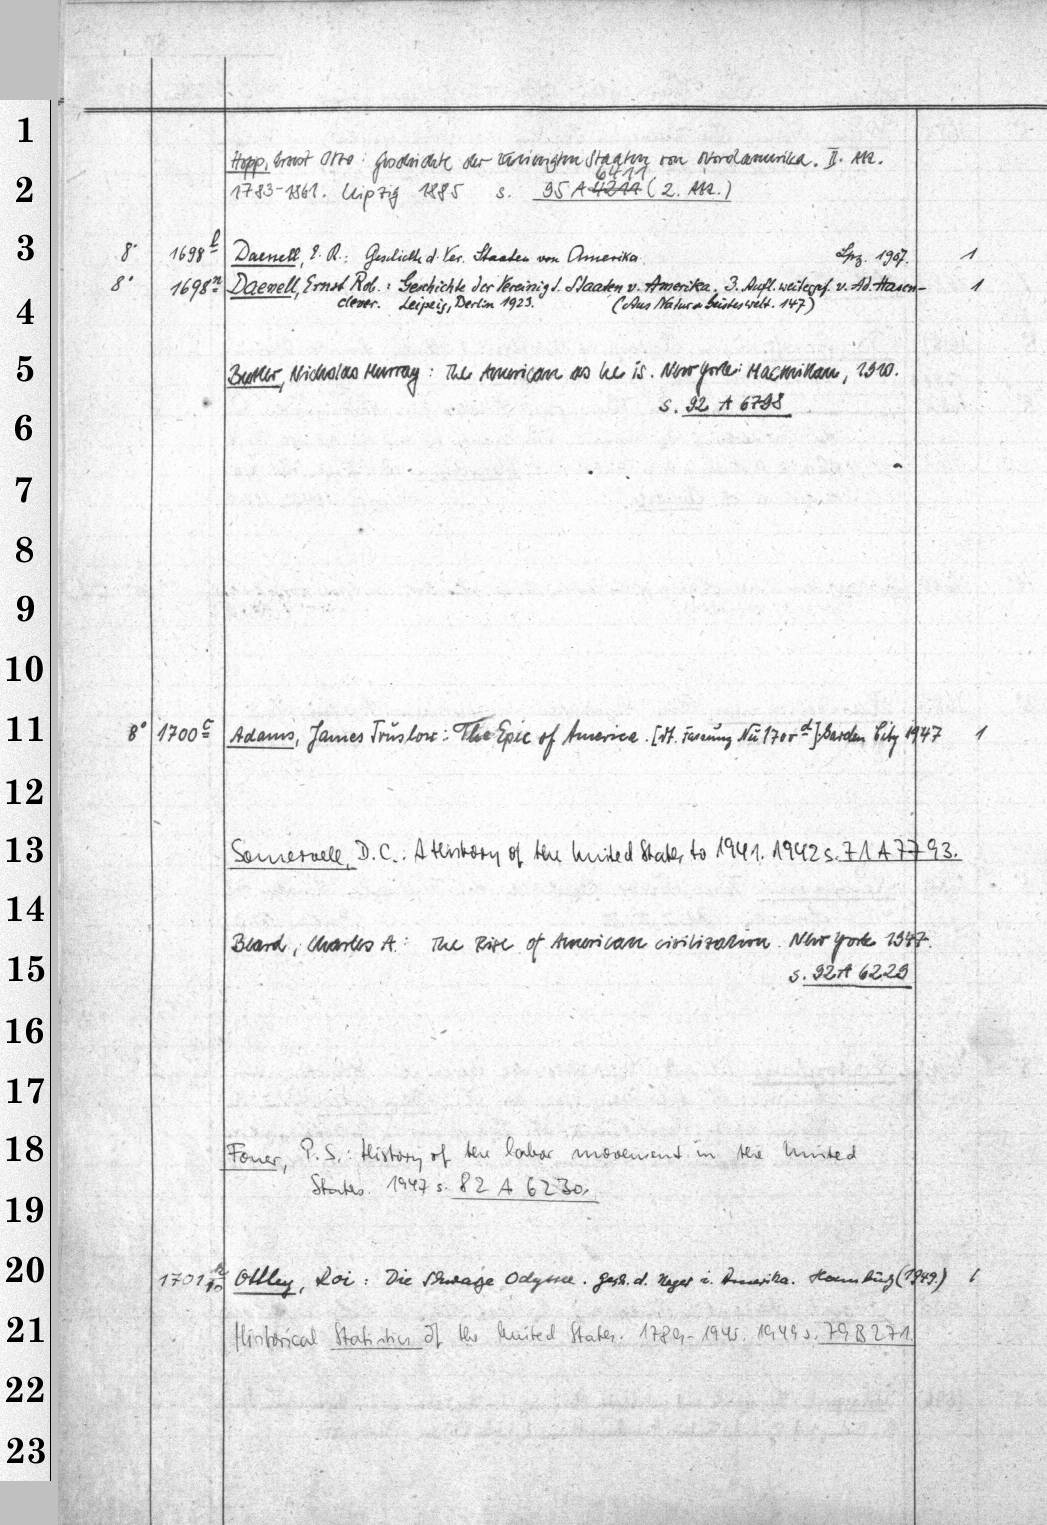 1
Hopp, Ernst Otto: Geschichte der Vereinigten Staaten von Nordamerika. II. Abt.
6411
2
1783-1861. Leipzig 1885 s. 95 A 4211 (2. Abt.)
3
8° 1698 l Daenell, E. R.: Geschichte d. Ver. Staaten von Amerika Lpz. 1907. 1
8° 1698 n Daenell, Ernst Rob.: Geschichte der Vereinigt. Staaten v. Amerika. 3. Aufl. weitergef. v. Ad. Hasen- 1
4
clever. Leipzig, Berlin 1923. (Aus Natur u. Geisteswelt. 147)
5
Butler, Nicholas Murray: The American as he is. New York: Macmillan, 1910.
s. 92 A 6798
6
7
8
9
10
11
8° 1700 c Adams, James Truslow: The Epic of America. [dt. Fassung Nu 1700 d] Garden City 1947 1
12
13
Somervell, D.C.: A History of the United States to 1941. 1942 s. 71 A 7793.
14
Beard, Charles A: The Rise of American civilization. New York 1947.
15
s. 92 A 6229
16
17
18
Foner, P. S.: History of the labor movement in the United
States. 1947 s. 82 A 6230.
19
20
1701 Ottley, Roi: Die schwarze Odyssee. Gesch. d. Neger i. Amerika. Hamburg (1949.) 1
21
Historical Statistics of the United States. 1789-1945. 1949 s. 79 B 271.
22
23